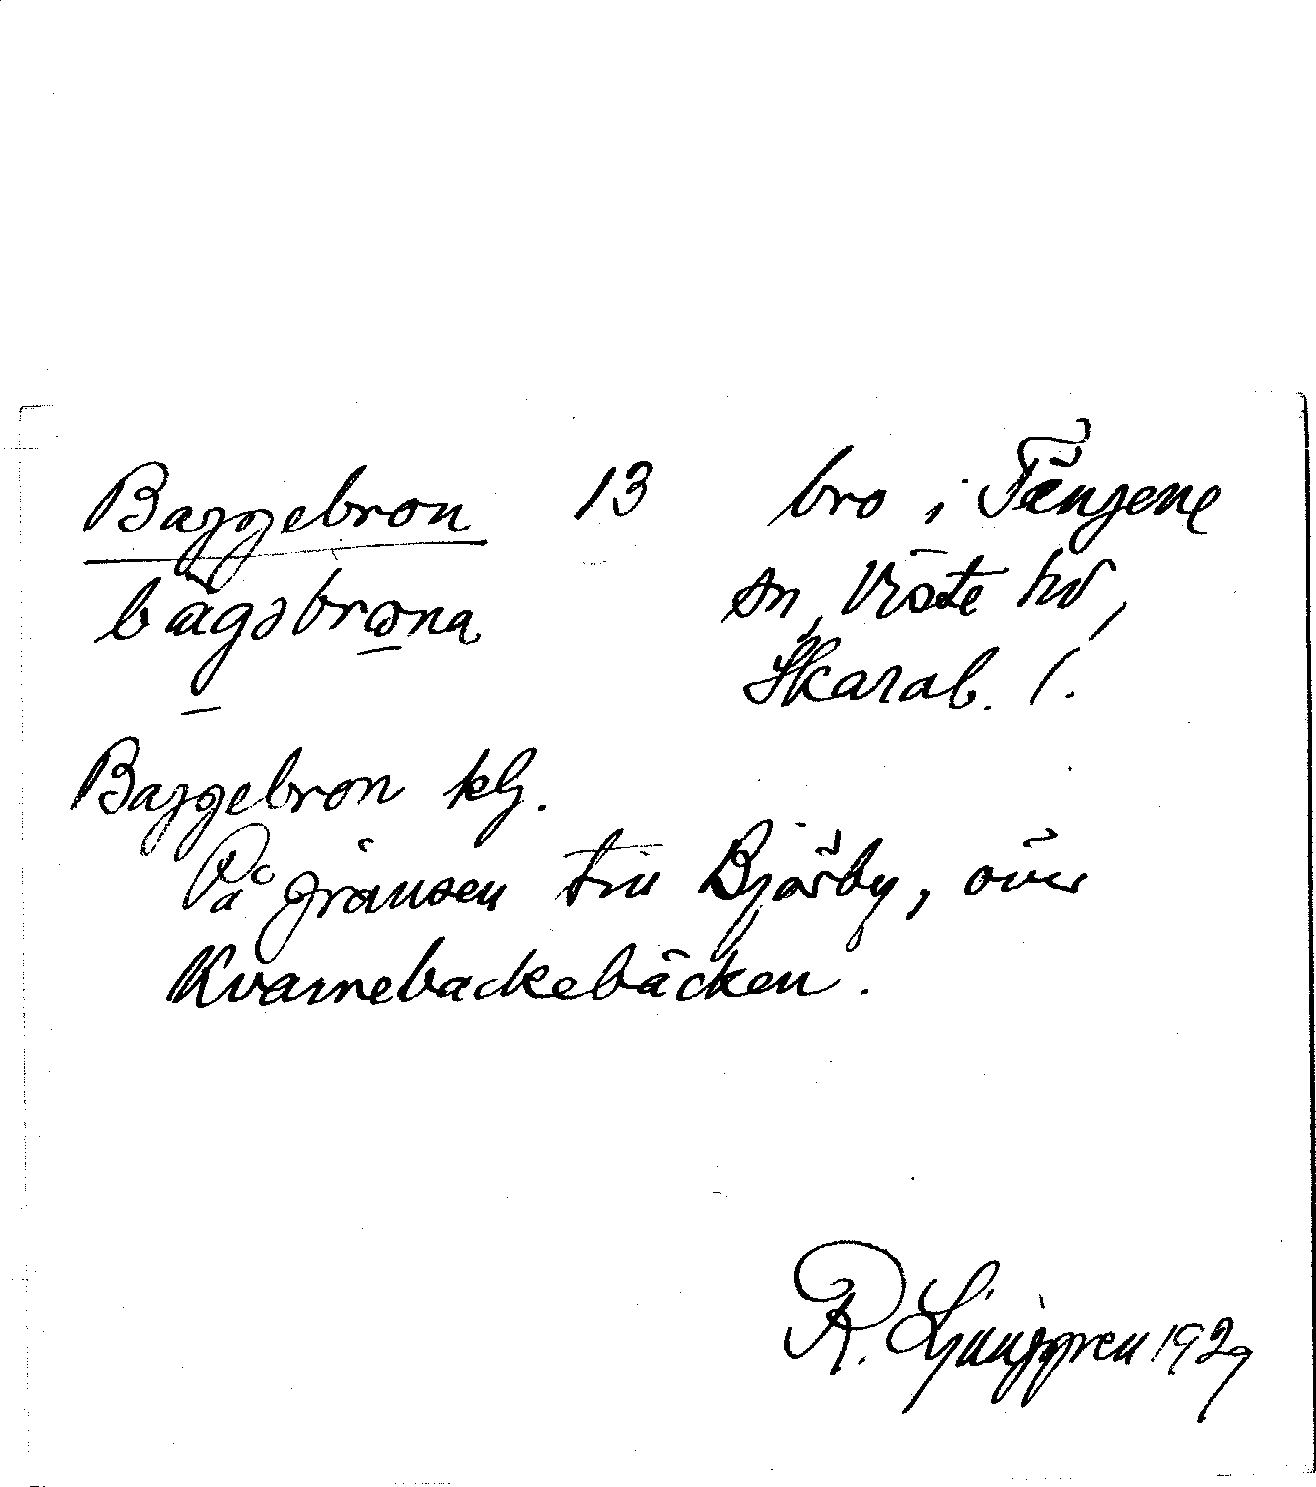 Baggebron 13 bro i Tängene
bag̠əbrɷ̠na sn, Viste hd,
Skarab. l.
Baggebron kg.
På gränsen till Bjärby, över
Kvarnebackebäcken.
R. Ljunggren 1929